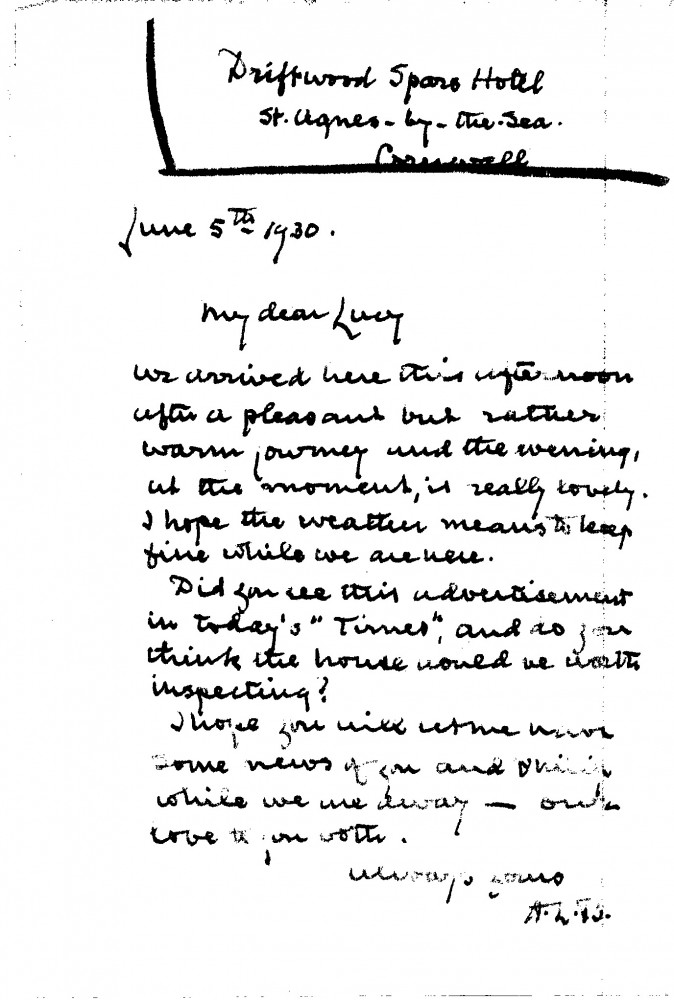 Driftwood Spars Hotel
St. Agnes-by-the-Sea.
Cornwall
June 5th 1930.
My dear Lucy
We arrived here this afternoon
after a pleasant but rather
warm journey and the evening,
at the moment, is really lovely.
I hope the weather means to keep
fine while we are here.
Did you see this advertisement
in today's "Times", and do you
think the house would be worth
inspecting?
I hope you will let me have
some news of you and Philip
while we are away — our
love to you both.
Always yours